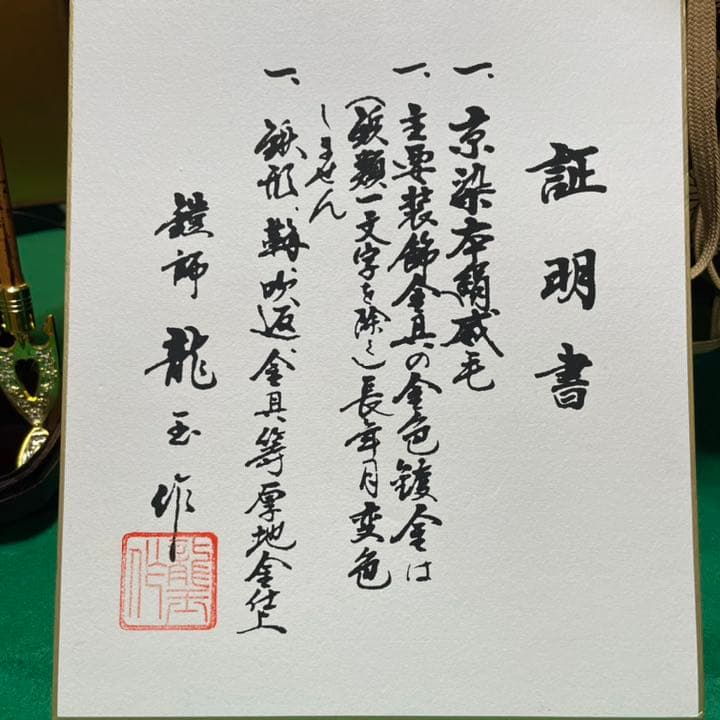 証明書
一、京染本絹威毛
一、主要装飾金具の金色鍍金は
(鋲類一文字を除く)長年月変色
しません
一、鍬形、𩊱、吹返、金具等厚地金仕上
鎧師 龍玉作
龍玉作